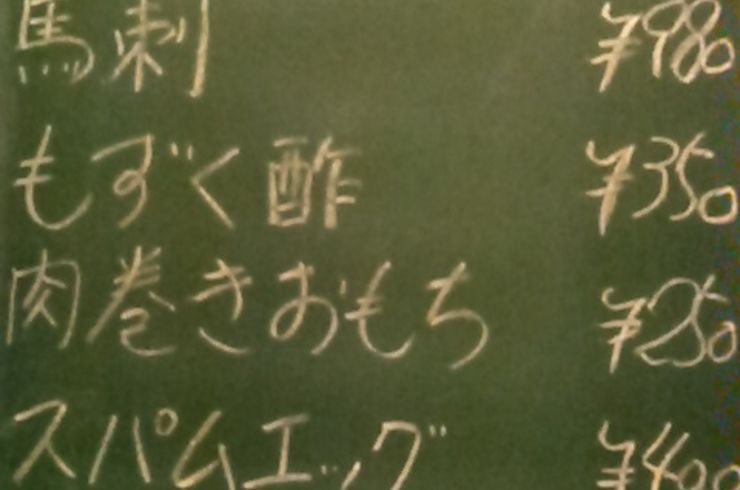 馬刺 ¥980
もずく酢 ¥350
肉巻きおもち ¥250
スパムエッグ ¥400